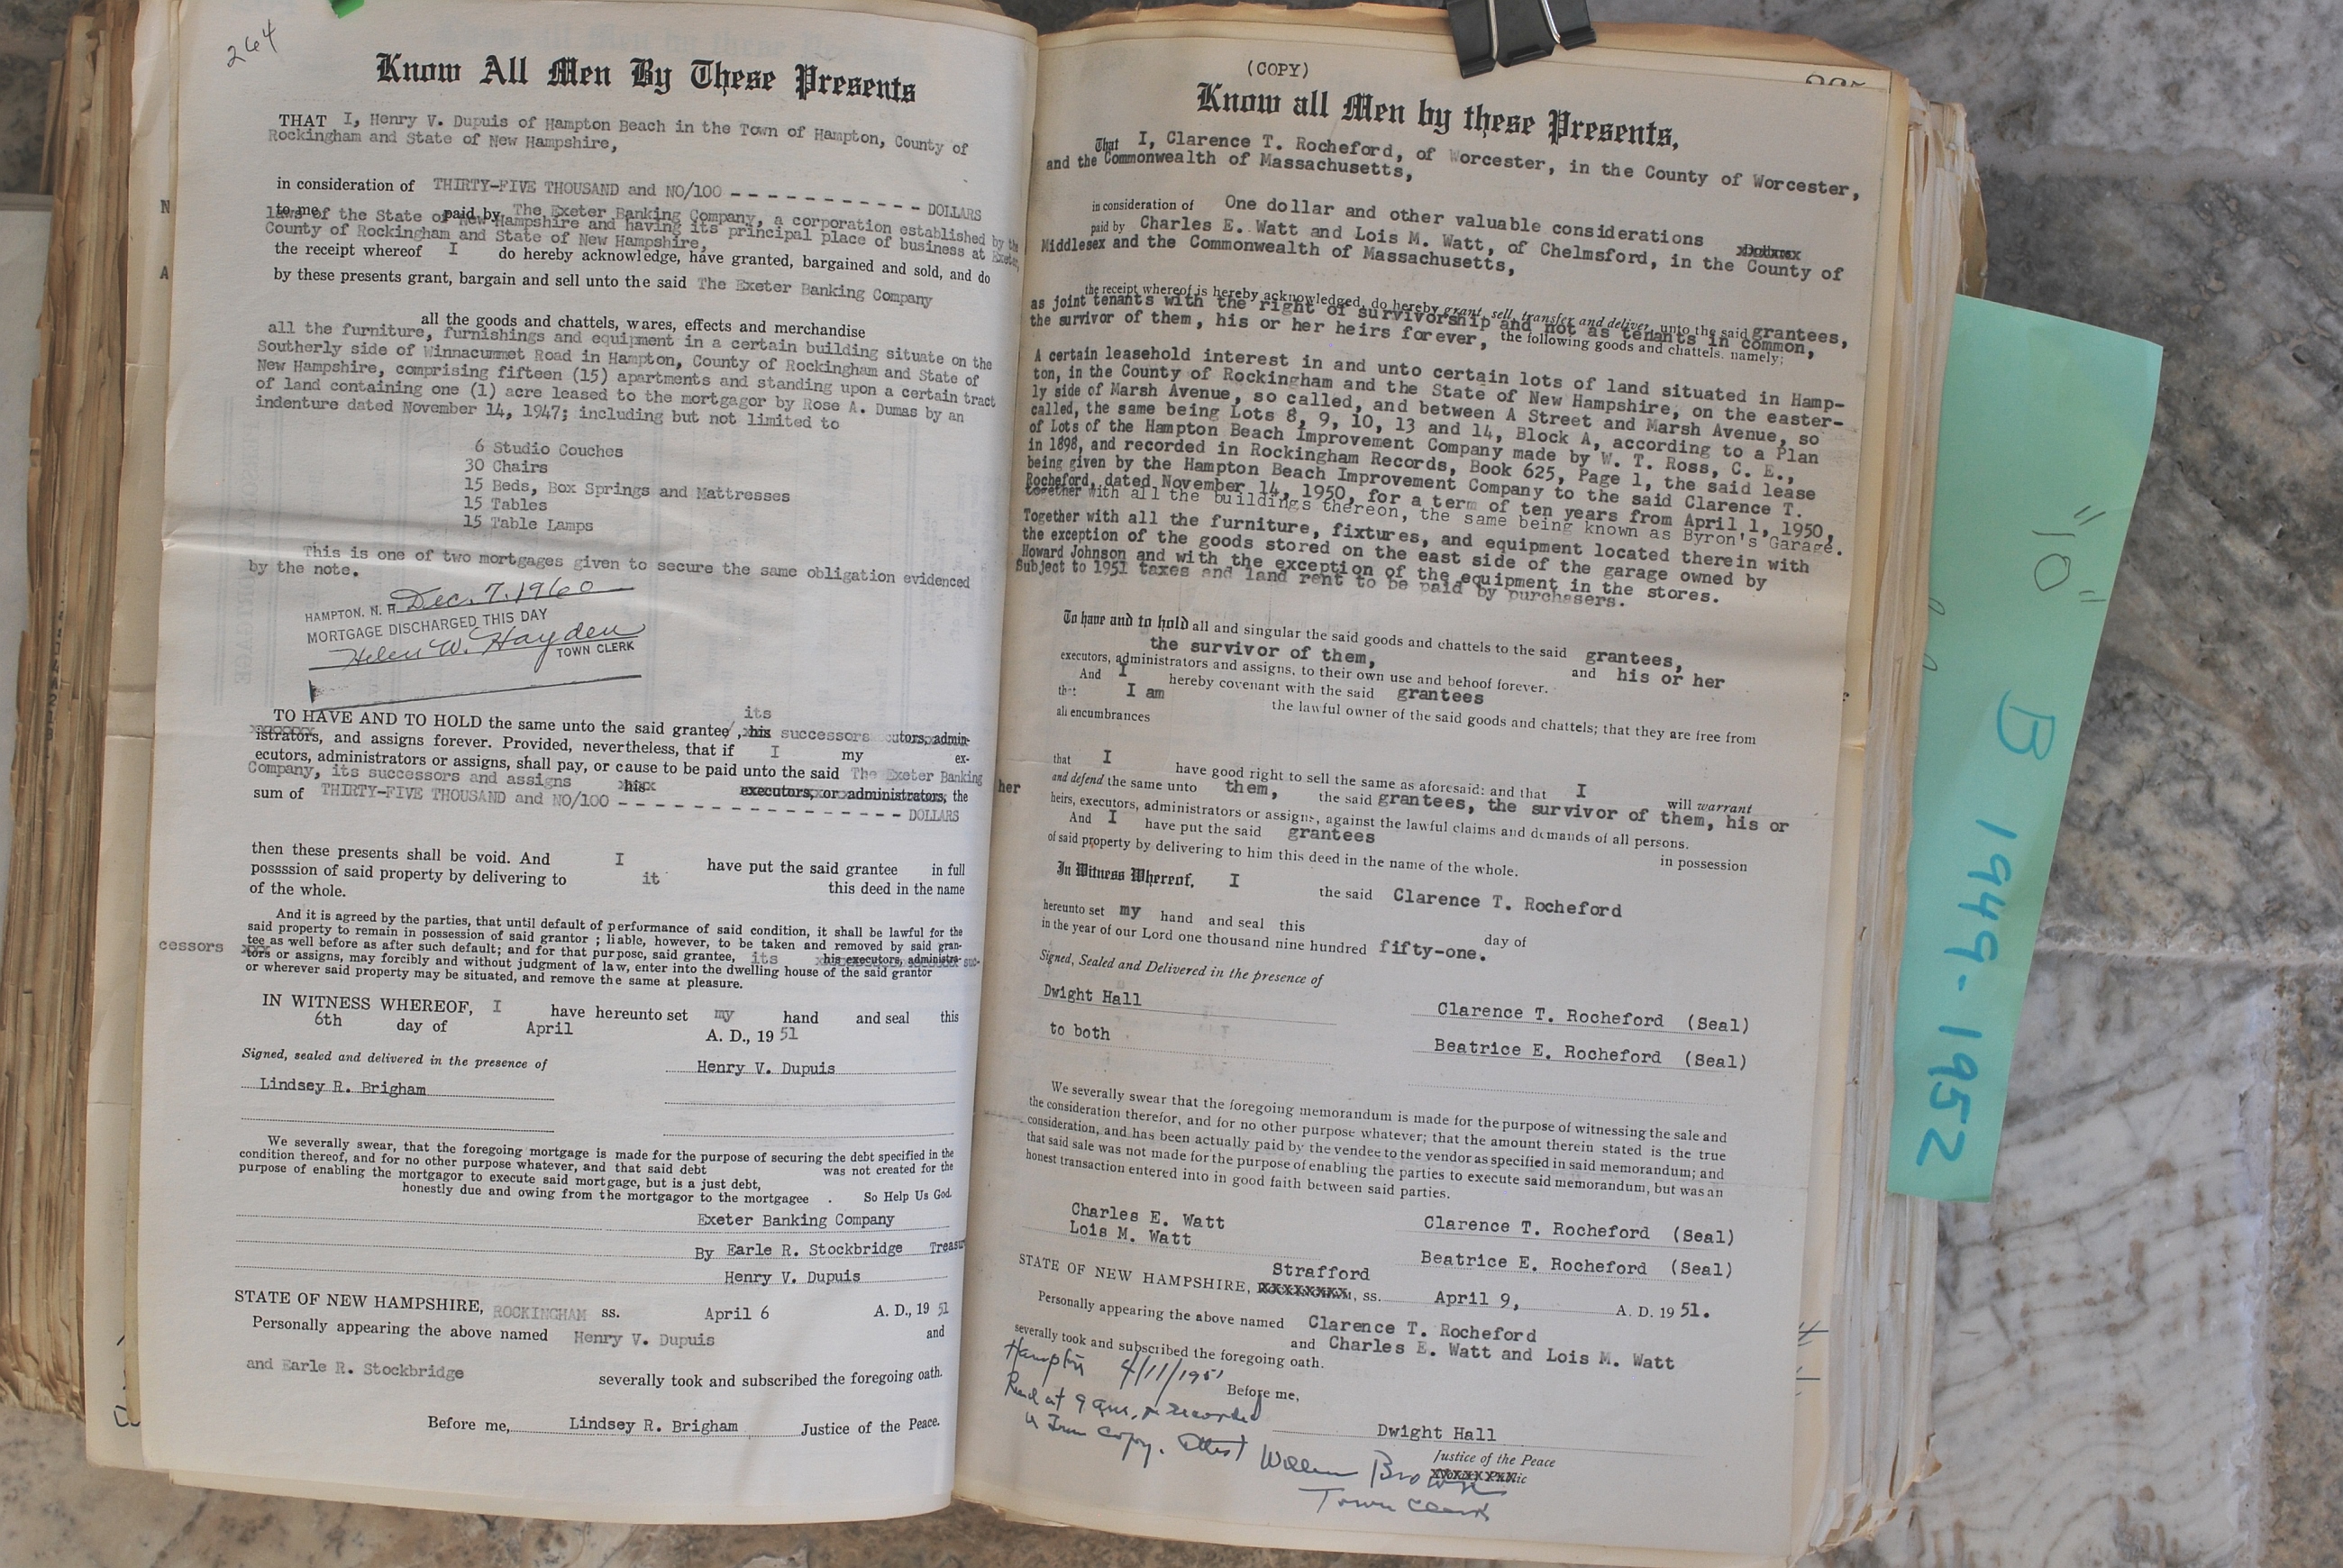 264
Know All Men By These Presents
THAT I, Henry V. Dupuis of Hampton Beach in the Town of Hampton, County of
Rockingham and State of New Hampshire,
in consideration of THIRTY-FIVE THOUSAND and NO/100 - - - - - - - - - - - - DOLLARS
to me paid by The Exeter Banking Company, a corporation established by the
laws of the State of New Hampshire and having its principal place of business at Exeter,
County of Rockingham and State of New Hampshire,
the receipt whereof I do hereby acknowledge, have granted, bargained and sold, and do
by these presents grant, bargain and sell unto the said The Exeter Banking Company
all the goods and chattels, wares, effects and merchandise
all the furniture, furnishings and equipment in a certain building situate on the
Southerly side of Winnacummet Road in Hampton, County of Rockingham and State of
New Hampshire, comprising fifteen (15) apartments and standing upon a certain tract
of land containing one (1) acre leased to the mortgagor by Rose A. Dumas by an
indenture dated November 14, 1947; including but not limited to
6 Studio Couches
30 Chairs
15 Beds, Box Springs and Mattresses
15 Tables
15 Table Lamps
This is one of two mortgages given to secure the same obligation evidenced
by the note.
HAMPTON, N. H. Dec. 7, 1960
MORTGAGE DISCHARGED THIS DAY
Helen W. Hayden
TOWN CLERK
its
TO HAVE AND TO HOLD the same unto the said grantee, his successors cutors, admin-
istrators, and assigns forever. Provided, nevertheless, that if I my ex-
ecutors, administrators or assigns, shall pay, or cause to be paid unto the said The Exeter Banking
Company, its successors and assigns his executors, or administrators, the
sum of THIRTY-FIVE THOUSAND and NO/100 - - - - - - - - - - - - DOLLARS
then these presents shall be void. And I have put the said grantee in full
posssion of said property by delivering to it this deed in the name
of the whole.
And it is agreed by the parties, that until default of performance of said condition, it shall be lawful for the
said property to remain in possession of said grantor ; liable, however, to be taken and removed by said gran-
tee as well before as after such default; and for that purpose, said grantee, its his executors, administra- suc-
cessors tors or assigns, may forcibly and without judgment of law, enter into the dwelling house of the said grantor
or wherever said property may be situated, and remove the same at pleasure.
IN WITNESS WHEREOF, I have hereunto set my hand and seal this
6th day of April A. D., 19 51
Signed, sealed and delivered in the presence of
Henry V. Dupuis
Lindsey R. Brigham
We severally swear, that the foregoing mortgage is made for the purpose of securing the debt specified in the
condition thereof, and for no other purpose whatever, and that said debt was not created for the
purpose of enabling the mortgagor to execute said mortgage, but is a just debt,
honestly due and owing from the mortgagor to the mortgagee . So Help Us God.
Exeter Banking Company
By Earle R. Stockbridge Treasu
Henry V. Dupuis
STATE OF NEW HAMPSHIRE, ROCKINGHAM ss. April 6 A. D., 19 51
Personally appearing the above named Henry V. Dupuis and
and Earle R. Stockbridge severally took and subscribed the foregoing oath.
Before me, Lindsey R. Brigham Justice of the Peace.
(COPY)
Know all Men by these Presents,
That I, Clarence T. Rocheford, of Worcester, in the County of Worcester,
and the Commonwealth of Massachusetts,
in consideration of One dollar and other valuable considerations Dollars
paid by Charles E. Watt and Lois M. Watt, of Chelmsford, in the County of
Middlesex and the Commonwealth of Massachusetts,
the receipt whereof is hereby acknowledged, do hereby grant, sell, transfer and deliver unto the said grantees,
as joint tenants with the right of survivorship and not as tenants in common,
the survivor of them, his or her heirs forever, the following goods and chattels, namely;
A certain leasehold interest in and unto certain lots of land situated in Hamp-
ton, in the County of Rockingham and the State of New Hampshire, on the easter-
ly side of Marsh Avenue, so called, and between A Street and Marsh Avenue, so
called, the same being Lots 8, 9, 10, 13 and 14, Block A, according to a Plan
of Lots of the Hampton Beach Improvement Company made by W. T. Ross, C. E.,
in 1898, and recorded in Rockingham Records, Book 625, Page 1, the said lease
being given by the Hampton Beach Improvement Company to the said Clarence T.
Rocheford, dated November 14, 1950, for a term of ten years from April 1, 1950,
together with all the buildings thereon, the same being known as Byron's Garage.
Together with all the furniture, fixtures, and equipment located therein with
the exception of the goods stored on the east side of the garage owned by
Howard Johnson and with the exception of the equipment in the stores.
Subject to 1951 taxes and land rent to be paid by purchasers.
To have and to hold all and singular the said goods and chattels to the said grantees,
the survivor of them, and his or her
executors, administrators and assigns, to their own use and behoof forever.
And I hereby covenant with the said grantees
that I am the lawful owner of the said goods and chattels; that they are free from
all encumbrances
that I have good right to sell the same as aforesaid: and that I will warrant
and defend the same unto them, the said grantees, the survivor of them, his or
her heirs, executors, administrators or assigns, against the lawful claims and demands of all persons.
And I have put the said grantees in possession
of said property by delivering to him this deed in the name of the whole.
In Witness Whereof, I the said Clarence T. Rocheford
hereunto set my hand and seal this day of
in the year of our Lord one thousand nine hundred fifty-one.
Signed, Sealed and Delivered in the presence of
Dwight Hall Clarence T. Rocheford (Seal)
to both Beatrice E. Rocheford (Seal)
We severally swear that the foregoing memorandum is made for the purpose of witnessing the sale and
the consideration therefor, and for no other purpose whatever; that the amount therein stated is the true
consideration, and has been actually paid by the vendee to the vendor as specified in said memorandum; and
that said sale was not made for the purpose of enabling the parties to execute said memorandum, but was an
honest transaction entered into in good faith between said parties.
Charles E. Watt Clarence T. Rocheford (Seal)
Lois M. Watt Beatrice E. Rocheford (Seal)
Strafford
STATE OF NEW HAMPSHIRE, XXXXXXXXX, ss. April 9, A. D. 19 51.
Personally appearing the above named Clarence T. Rocheford
and Charles E. Watt and Lois M. Watt
severally took and subscribed the foregoing oath.
Hampton 4/11/1951
Before me,
Recd at 9 am, & recorded
a True Copy. Attest William Brown
Town Clerk
Dwight Hall
Justice of the Peace
"10"
B 1949-1952